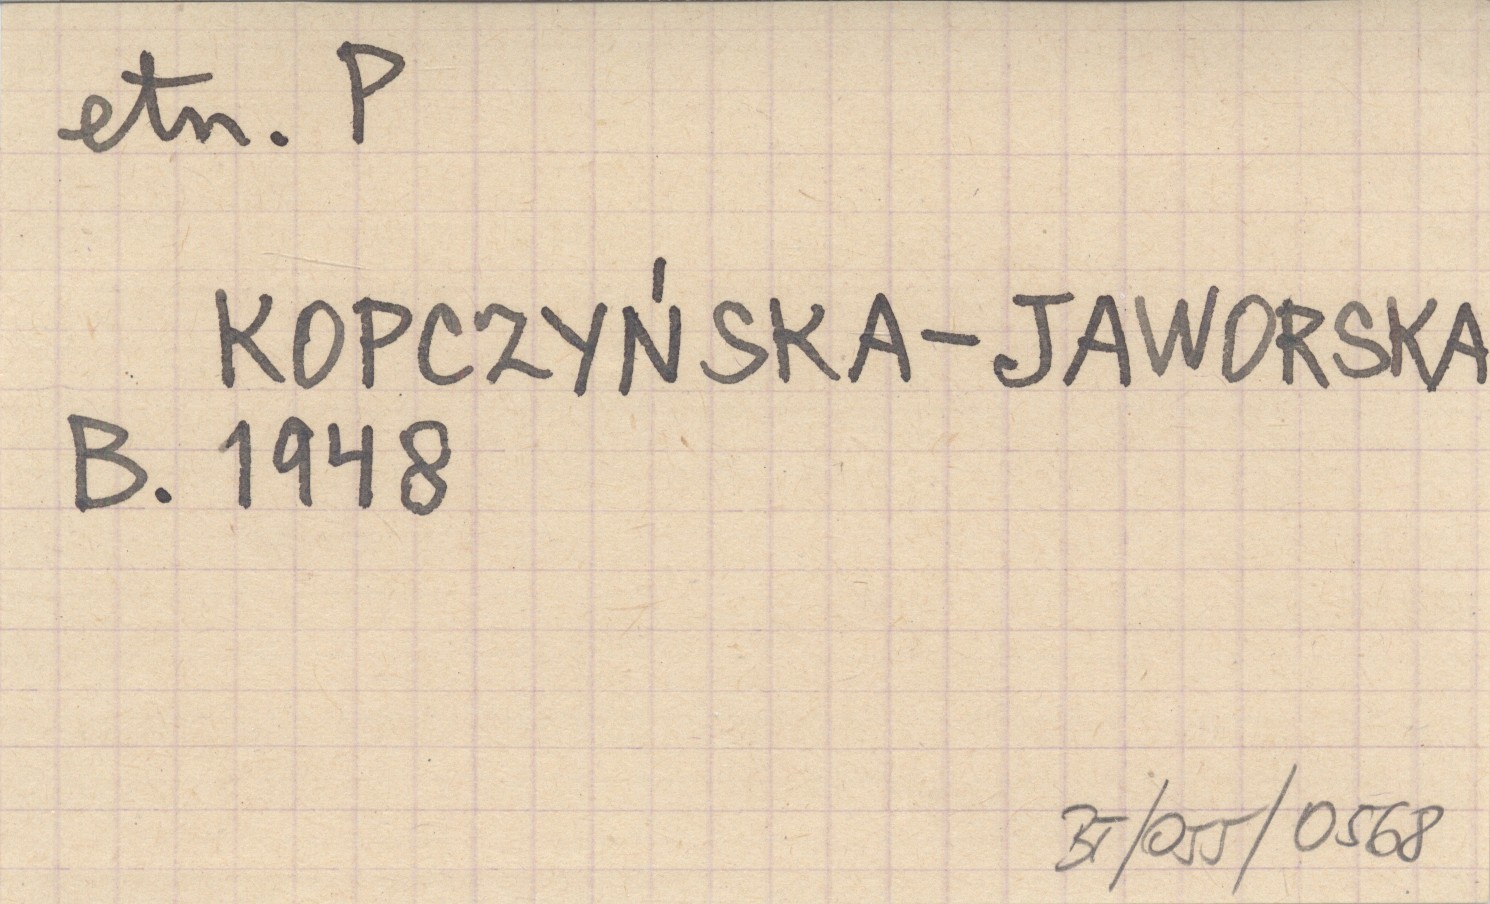 etn. P
KOPCZYŃSKA-JAWORSKA
B. 1948
/0568